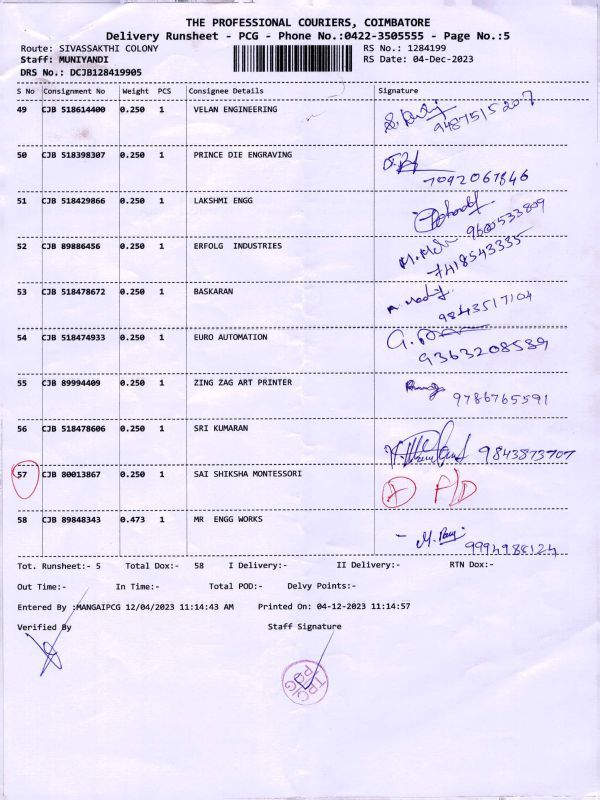 THE PROFESSIONAL COURIERS, COIMBATORE
Delivery Runsheet - PCG - Phone No.:0422-3505555 - Page No.:5
Route: SIVASSAKTHI COLONY RS No.: 1284199
Staff: MUNIYANDI RS Date: 04-Dec-2023
DRS No.: DCJB128419905
S No Consignment No Weight PCS Consignee Details Signature
49 CJB 518614400 0.250 1 VELAN ENGINEERING
9487515207
50 CJB 518398307 0.250 1 PRINCE DIE ENGRAVING
7092067846
51 CJB 518429866 0.250 1 LAKSHMI ENGG
9600533809
52 CJB 89886456 0.250 1 ERFOLG INDUSTRIES
7418543335
53 CJB 518478672 0.250 1 BASKARAN
9843517104
54 CJB 518474933 0.250 1 EURO AUTOMATION
9363208589
55 CJB 89994409 0.250 1 ZING ZAG ART PRINTER
9786765591
56 CJB 518478606 0.250 1 SRI KUMARAN
9843873707
57 CJB 80013867 0.250 1 SAI SHIKSHA MONTESSORI P/D
58 CJB 89848343 0.473 1 MR ENGG WORKS
9994988124
Tot. Runsheet:- 5 Total Dox:- 58 I Delivery:- II Delivery:- RTN Dox:-
Out Time:- In Time:- Total POD:- Delvy Points:-
Entered By :MANGAIPCG 12/04/2023 11:14:43 AM Printed On: 04-12-2023 11:14:57
Verified By Staff Signature